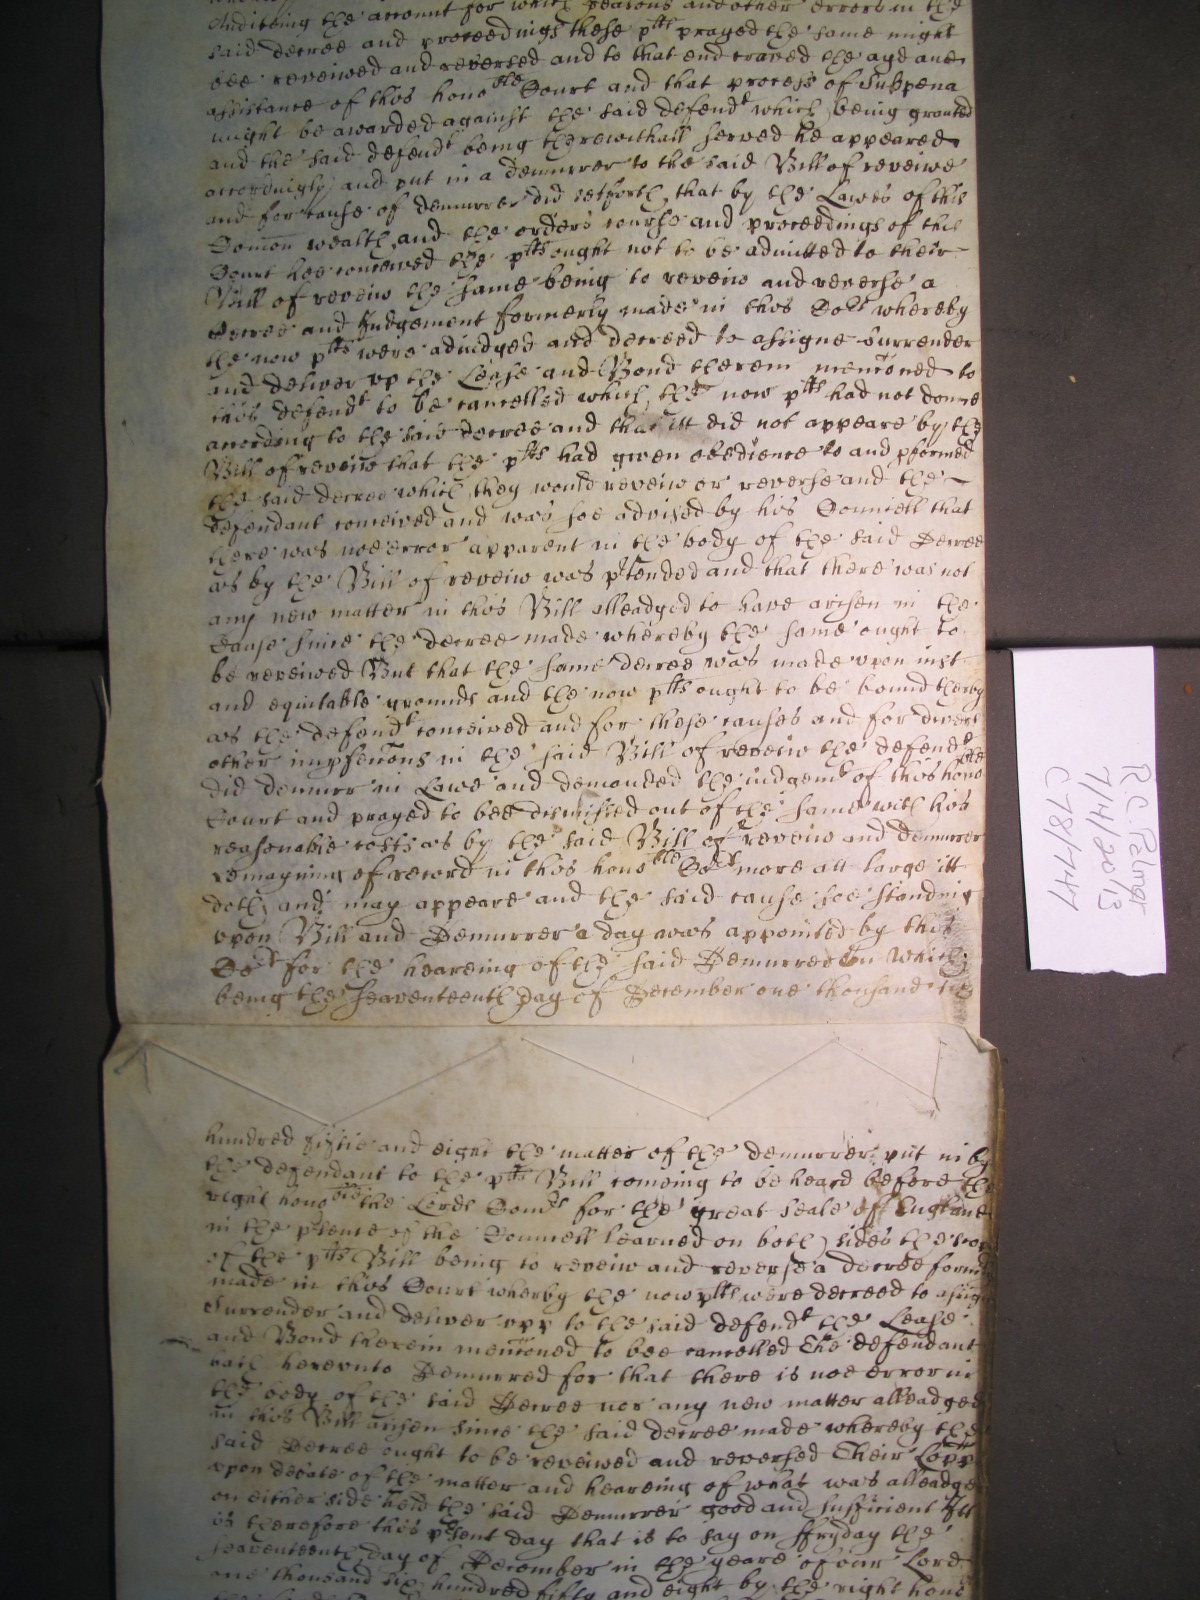 Auditeing the account for which reasons and other errors in the
said decree and proceedings these pltts prayed the same might
bee reveiwed and reversed and to that end craved the ayd and
assistance of this honoble Court and that process of Subpena
might be awarded against the said defendt which being graunted
and the said defendt being therewithall served he appeared
accordingly and put in a demurrer to the said Bill of reveiwe
and for cause of demurrer did setforth, that by the Lawes of this
Comon wealth and the orders course and proceedings of this
Court hee conceived the pltts ought not to be admitted to their
Bill of reveiw the same being to reveiw and reverse a
decree and Judgement formerly made in this Cort whereby
the now pltts were adiudged and decreed to assigne surrender
and deliver vp the Lease and Bond therein menconed to
this defendt to be cancelled which, the now pltts had not donne
according to the said decree and that itt did not appeare by the
Bill of reveiw that the pltts had given obedience to and pformed
the said decree which they would reveiw or reverse and the
defendant conceived and was soe advised by his Councell that
there was noe error apparent in the body of the said Decree
as by the Bill of reveiw was ptended and that there was not
any new matter in this Bill alleadged to have arisen in the
Cause since the decree made whereby the same ought to
be reveiwed But that the same decree was made vpon iust
and equitable grounds and the now pltts ought to be bound therby
as the defendt conceived and for these causes and for divers
other impfecons in the said Bill of reveiw the defendt
did demurr in Lawe and demanded the iudgemt of this honoble
Court and prayed to bee dismissed out of the same with his
reasonable costs as by the said Bill of reveiw and demurrer
remayning of record in this honoble Cort more att large itt
doth and may appeare and the said cause soe standing
vpon Bill and Demurrer a day was appointed by this
Cort for the heareing of the said Demurrer On which
being the seaventeenth day of December one thousand six
hundred fiftie and eight the matter of the demurrer put in by
the defendant to the pltts Bill comeing to be heard before the
right honoble the Lords Comrs for the great seale of England
in the psence of the Councell learned on both sides the
of the pltts Bill being to reveiw and reverse a decree formerly
made in this Court wherby the now pltts were decreed to assigne
surrender and deliver vpp to the said defendt the Lease
and Bond therein menconed to bee cancelled The defendant
hath herevnto Demurred for that there is noe error in
the body of the said Decree nor any new matter alleadged
in this Bill arisen since the said decree made whereby the
said Decree ought to be reveiwed and reversed Their Lopps
vpon debate of the matter and heareing of what was alleadged
on either side held the said Demurrer good and sufficient Itt
is therefore this psent day that is to say on ffryday the
seaventeenth day of December in the yeare of our Lord
one thousand six hundred fifty and eight by the right honoble
R.C. Palmer
7/4/2013
C78/747